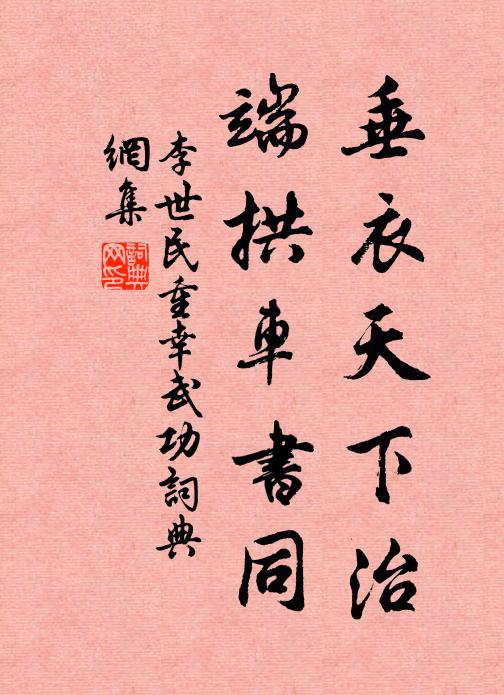 垂衣天下治
端拱車書同
李世民重幸武功詞典
網集
詞典
网印